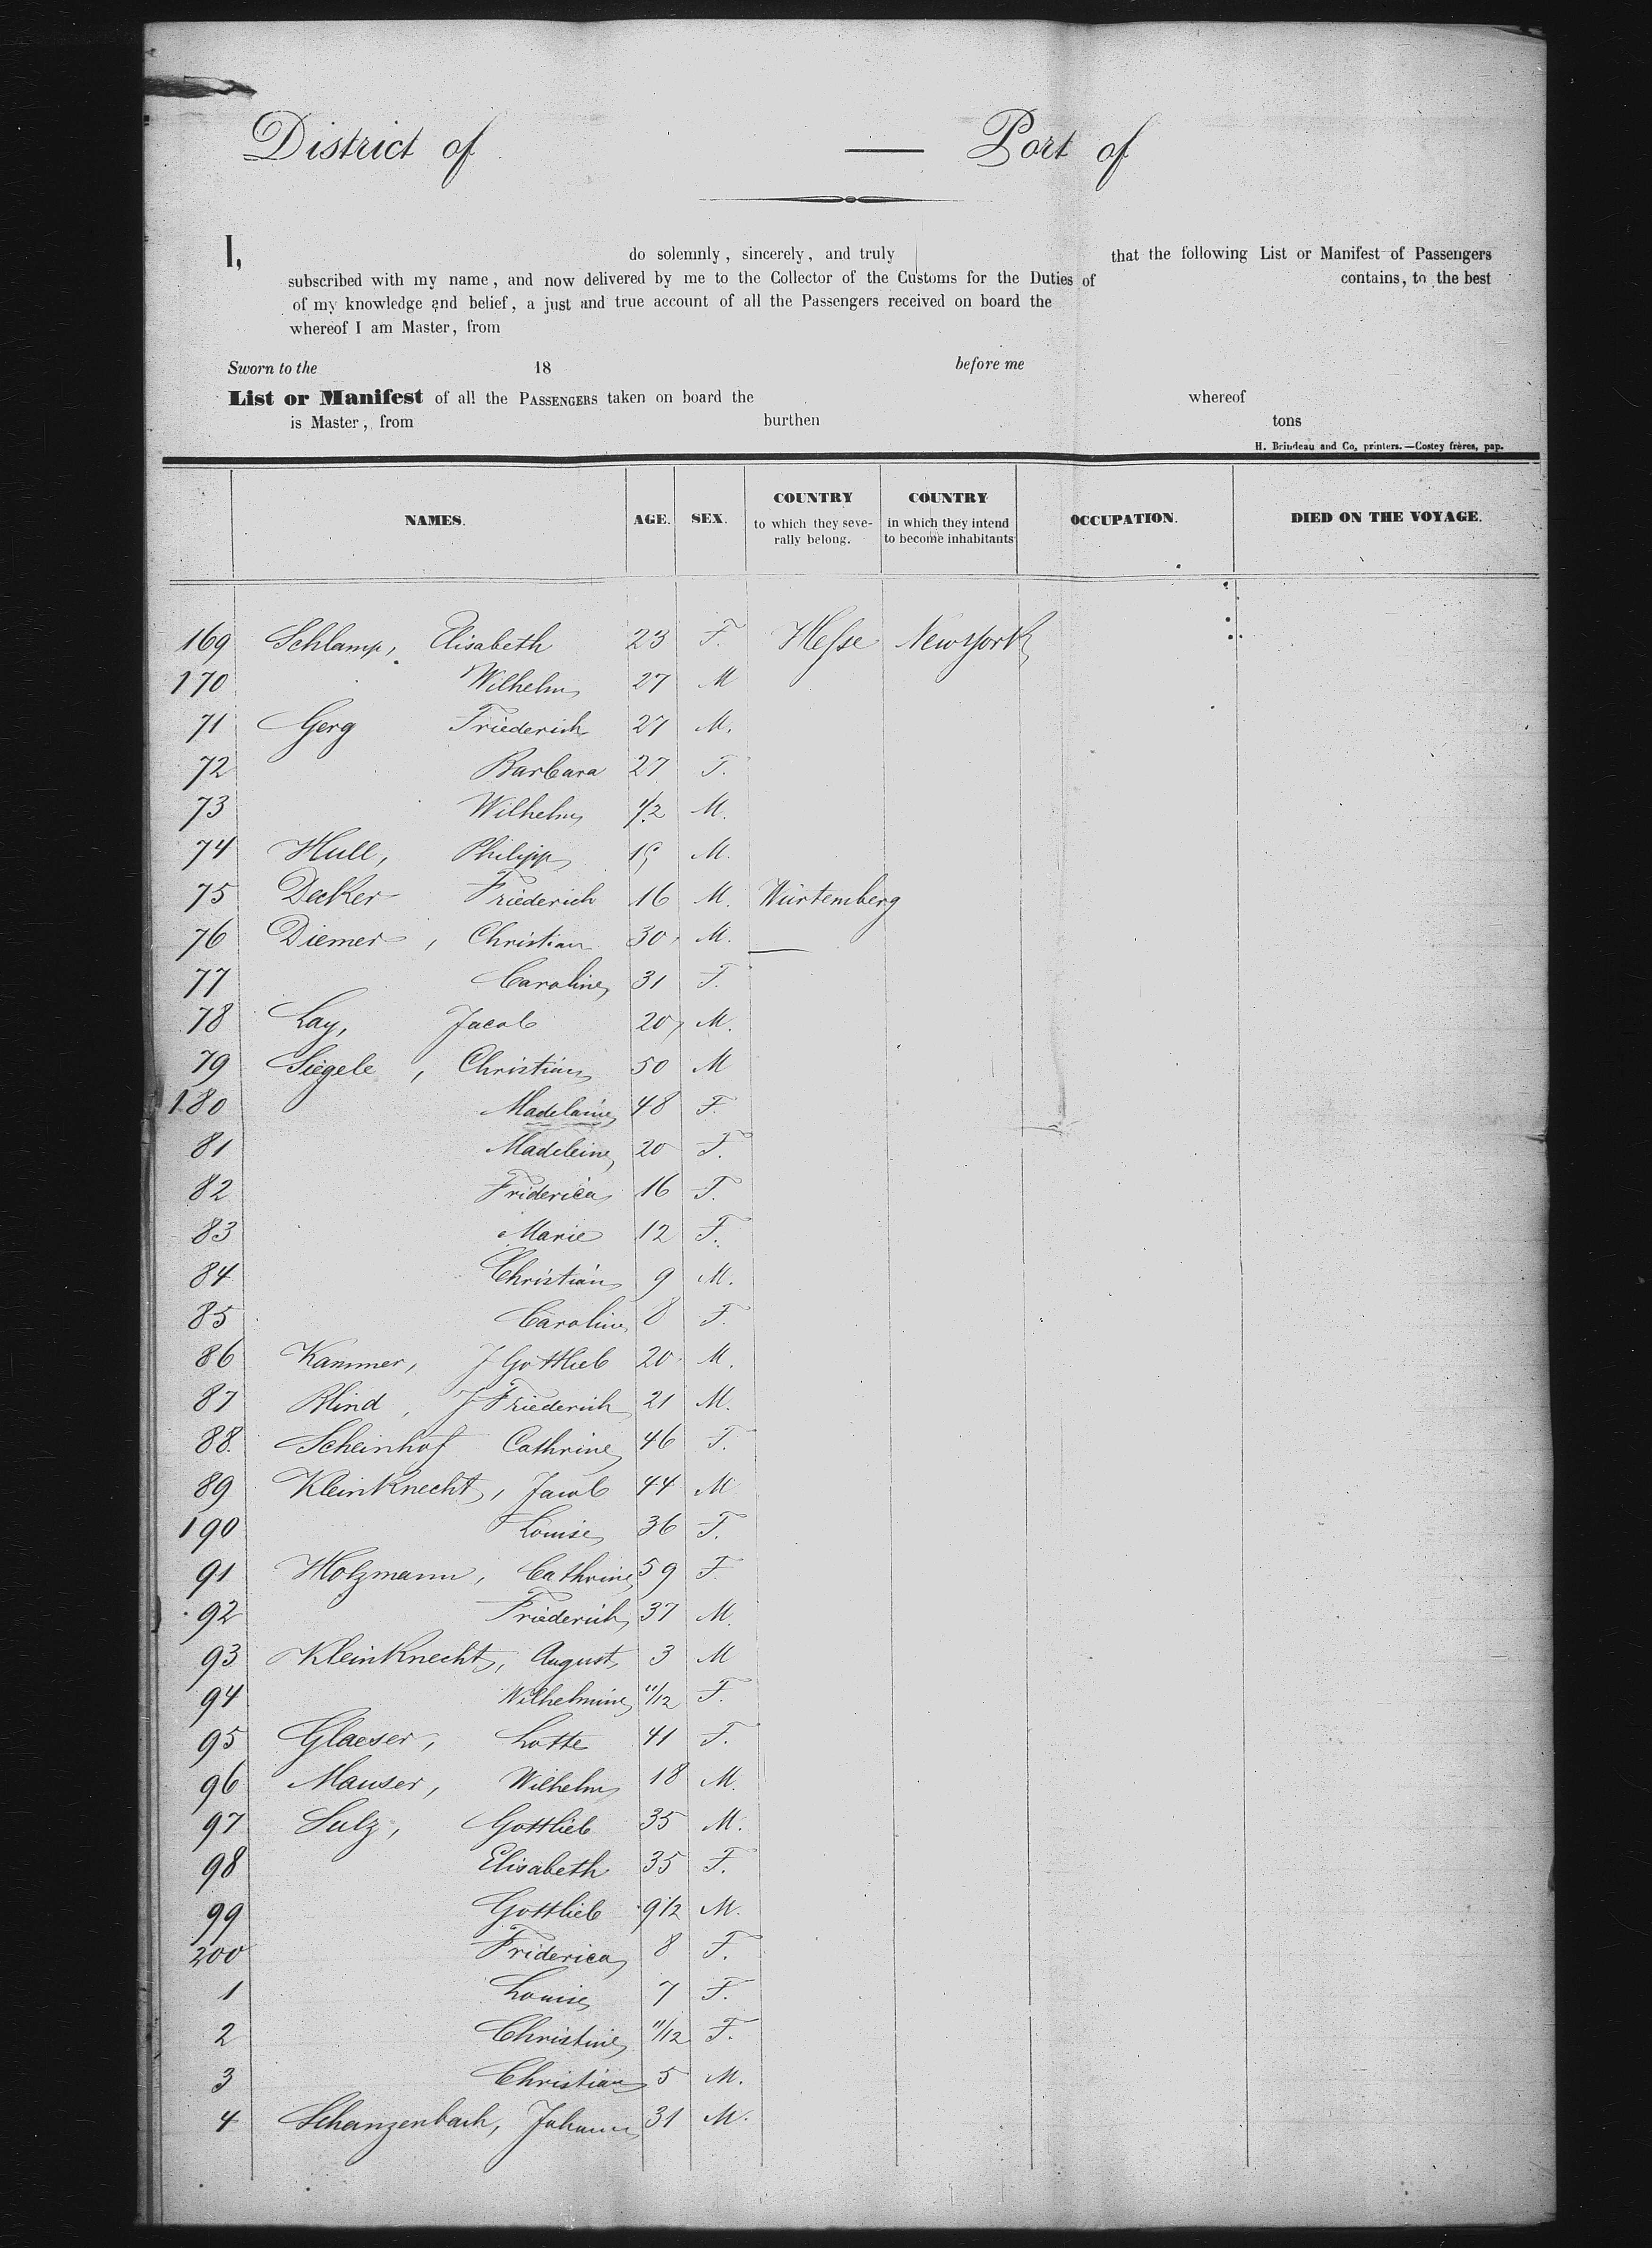 District of — Port of
I, do solemnly, sincerely, and truly that the following List or Manifest of Passengers
subscribed with my name, and now delivered by me to the Collector of the Customs for the Duties of contains, to the best
of my knowledge and belief, a just and true account of all the Passengers received on board the
whereof I am Master, from
Sworn to the 18 before me
List or Manifest of all the PASSENGERS taken on board the whereof
is Master, from burthen tons
H. Brindeau and Co, printers.—Costey frères, pap.
NAMES. AGE. SEX. COUNTRY to which they seve- rally belong. COUNTRY in which they intend to become inhabitants OCCUPATION. DIED ON THE VOYAGE.
169 Schlamp, Elisabeth 23 F. Hesse New York
170 Wilhelm 27 M
71 Gerg Friederich 27 M.
72 Barbara 27 F.
73 Wilhelm 1/2 M.
74 Hull, Philipp 19 M.
75 Decker Friederich 16 M. Würtemberg
76 Diemer, Christian 30 M. —
77 Caroline 31 F.
78 Lay, Jacob 20 M.
79 Siegele, Christian 50 M
180 Madelaine 48 F.
81 Madeleine 20 F.
82 Friderica 16 F.
83 Marie 12 F.
84 Christian 9 M.
85 Caroline 8 F.
86 Kammer, J Gottlieb 20 M.
87 Blind, J Friederich 21 M.
88. Scheinhof Cathrine 46 F.
89 KleinKnecht, Jacob 44 M
190 Louise 36 F.
91 Holzmann, Cathrine 59 F.
92 Friederich 37 M.
93 KleinKnecht, August 3 M
94 Wilhelmine 11/12 F.
95 Glaeser, Lotte 41 F.
96 Mauser, Wilhelm 18 M.
97 Sulz, Gottlieb 35 M.
98 Elisabeth 35 F.
99 Gottlieb 9 1/2 M.
200 Friderica 8 F.
1 Louise 7 F.
2 Christine 11/12 F.
3 Christian 5 M.
4 Schanzenbach, Johann 31 M.